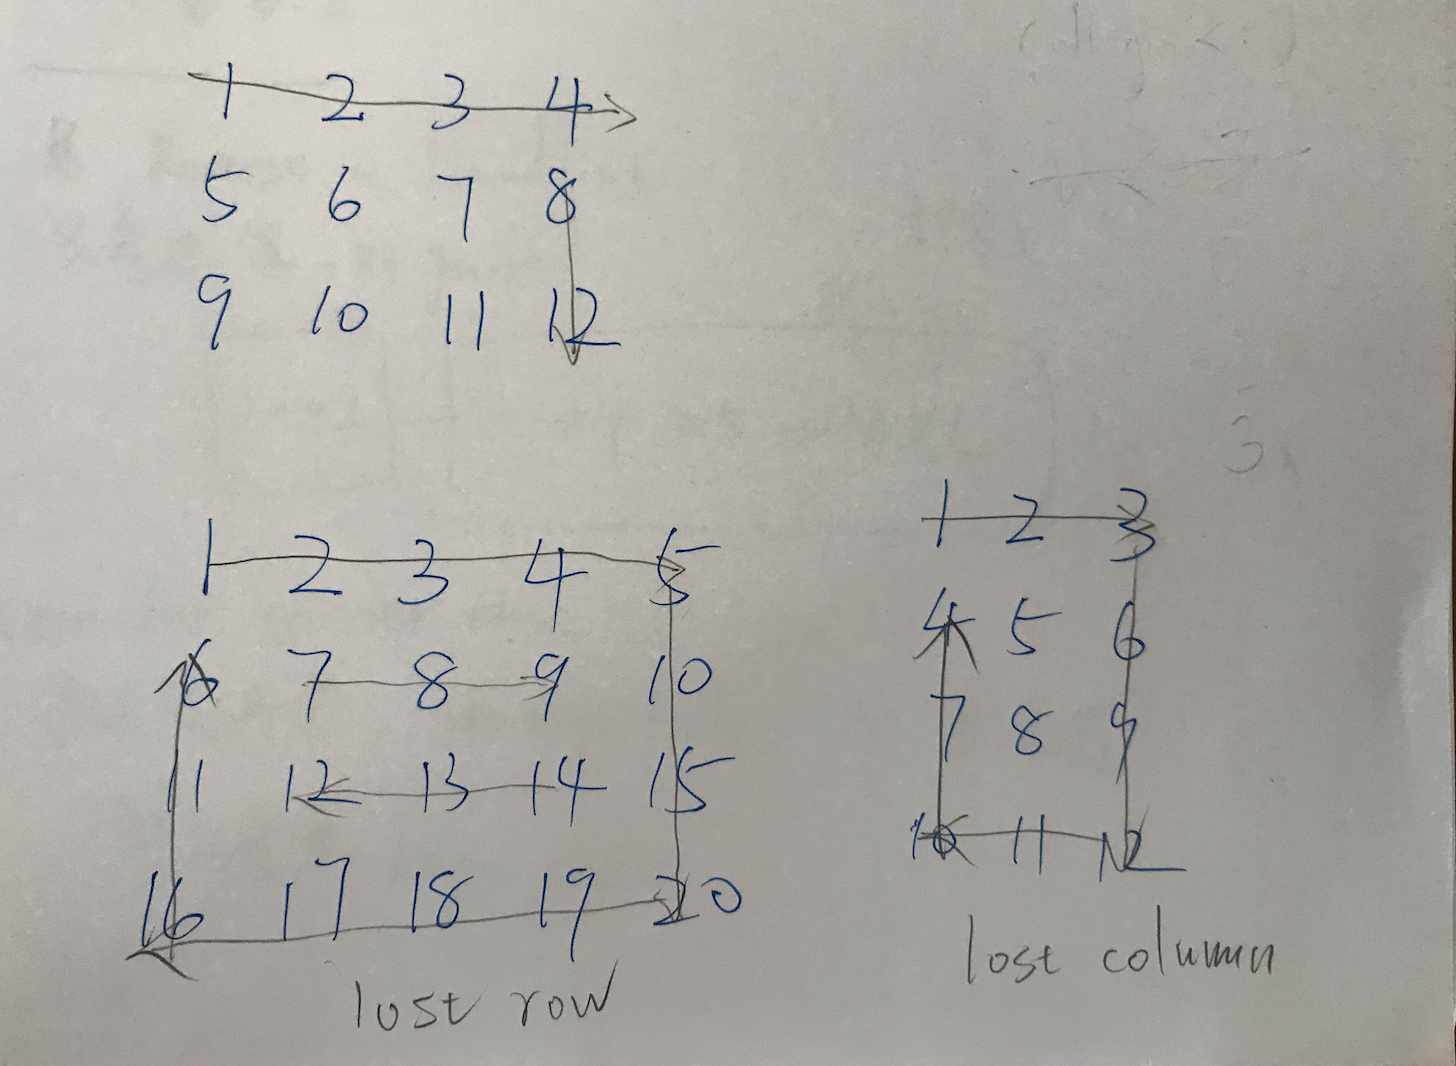 1 2 3 4
5 6 7 8
9 10 11 12
1 2 3 4 5
6 7 8 9 10
11 12 13 14 15
16 17 18 19 20
lost row
1 2 3
4 5 6
7 8 9
10 11 12
lost column